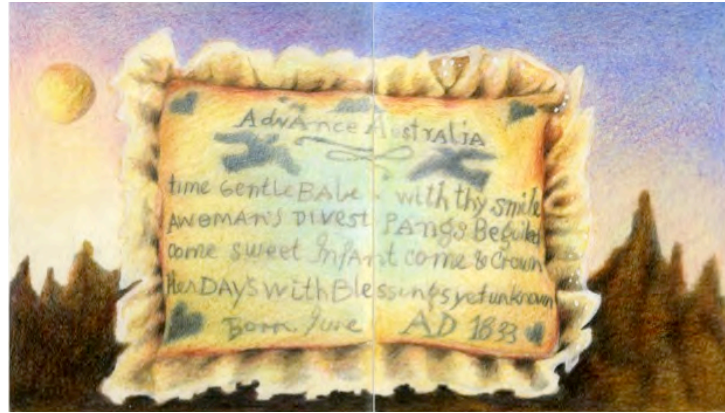 AdvAnce Australia
time GentleBAbe . with thy smile
AWOMAN'S DIVEST PANGS Beguiled
Come sweet InfAnt come & Crown
HerDAYS with Blessings yet unknown
Born June AD 1833